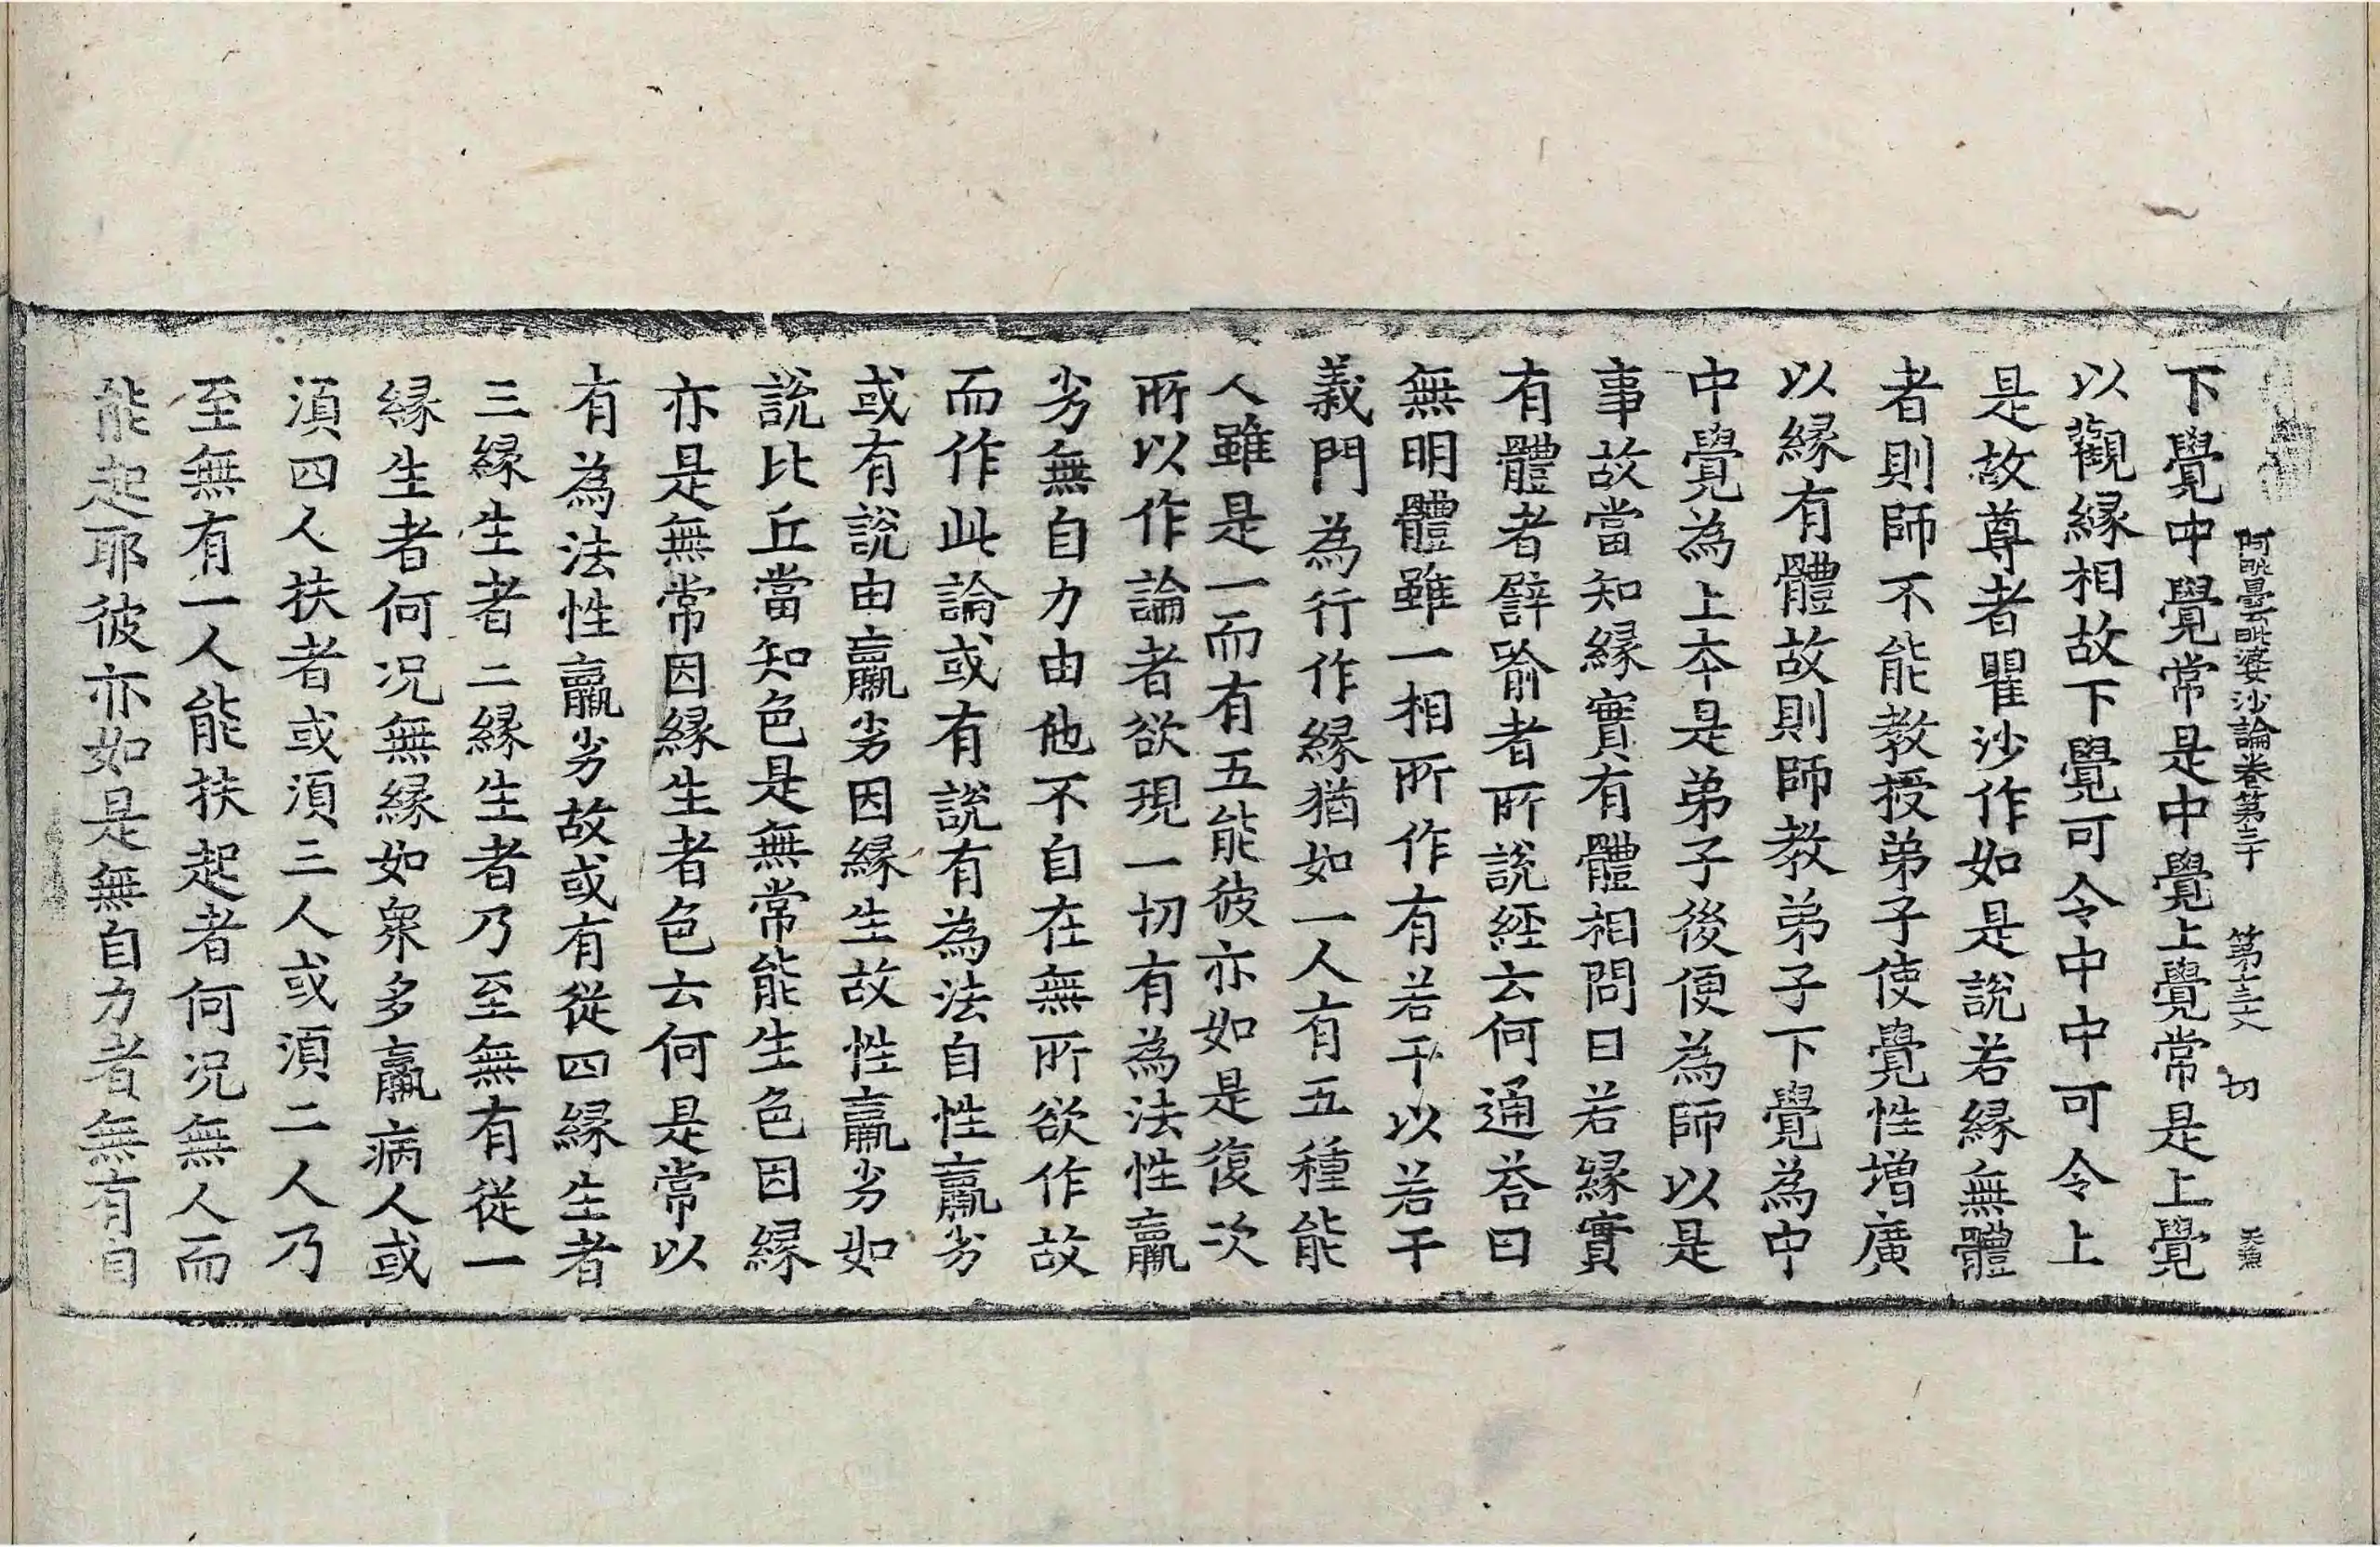 阿毗曇毗婆沙論卷第三十 第十三 切
下覺中覺常是中覺上覺常是上覺
以觀緣相故下覺可令中中可令上
是故尊者瞿沙作如是說若緣無體
者則師不能教授弟子使覺性增廣
以緣有體故則師教弟子下覺為中
中覺為上夲是弟子後便為師以是
事故當知緣實有體相問曰若緣實
有體者譬喻者所說經云何通荅曰
無明體雖一相所作有若干以若干
義門為行作緣猶如一人有五種能
人雖是一而有五能彼亦如是復次
所以作論者欲現一切有為法性羸
劣無自力由他不自在無所欲作故
而作此論或有說有為法自性羸劣
或有說由羸劣因緣生故性羸劣如
說比丘當知色是無常能生色因緣
亦是無常因緣生者色云何是常以
有為法性羸劣故或有從四緣生者
三緣生者二緣生者乃至無有從一
緣生者何況無緣如衆多羸病人或
須四人扶者或須三人或須二人乃
至無有一人能扶起者何況無人而
能起耶彼亦如是無自力者無有自